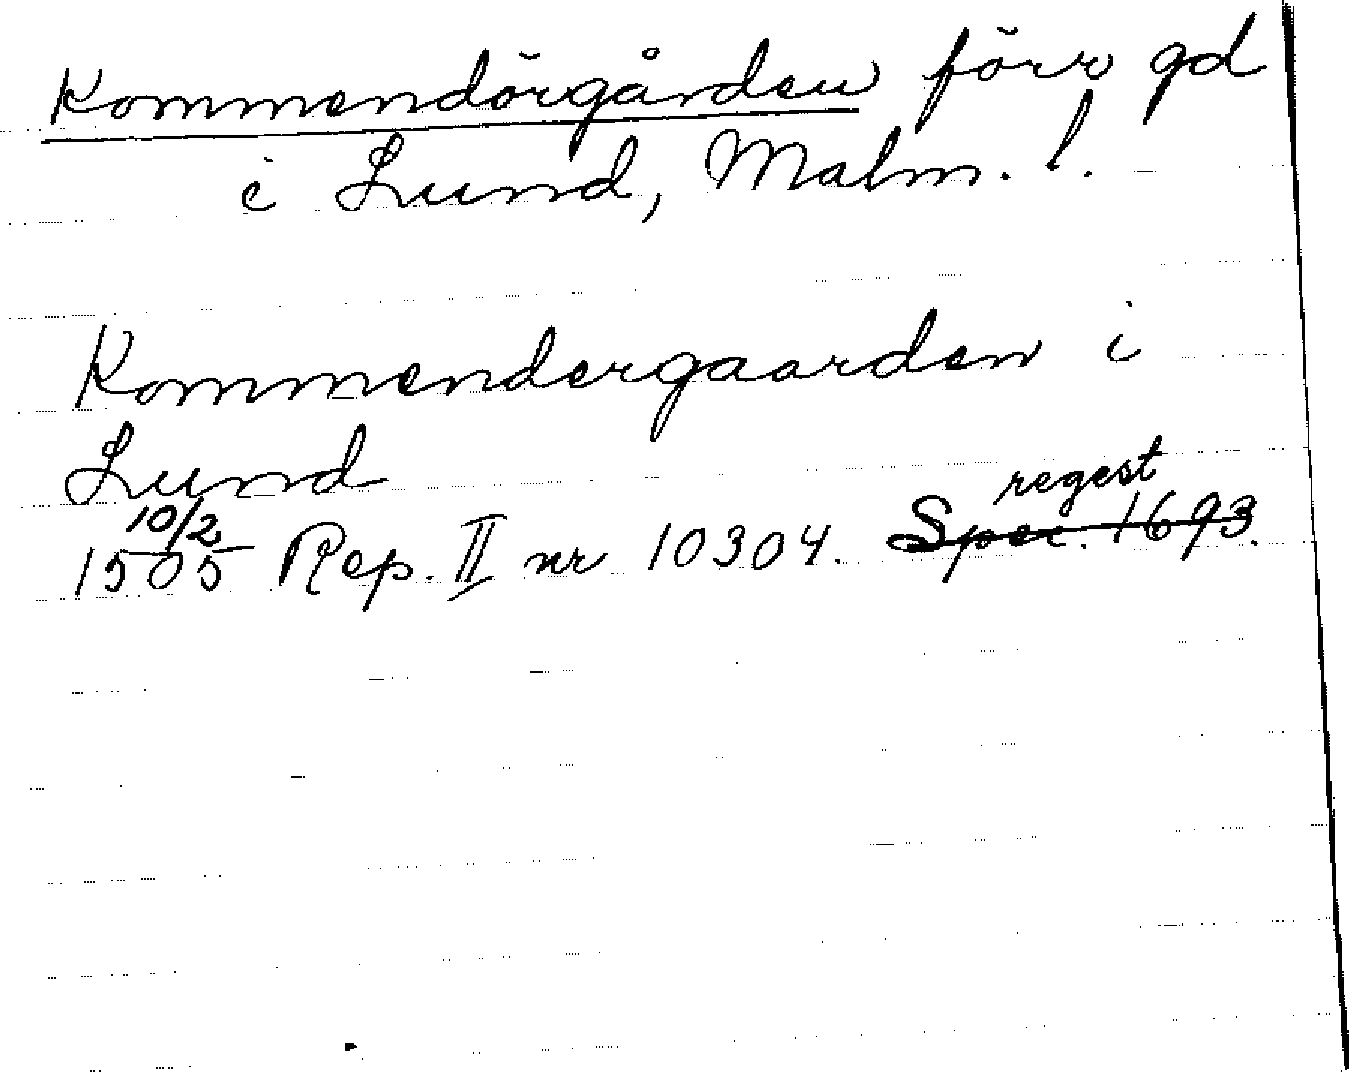 Kommendörgården förr gd
i Lund, Malm. l.
Kommendergaarden i
Lund
10/2 regest
1505 Rep. II nr 10304. Spec. 1693.